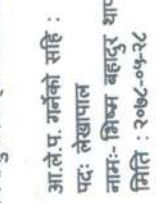 आ.ले.प. गर्नेको सहि :
पदः लेखापाल
नामः- भिष्म बहादुर थाप
मिति : २०७८-०५-२८